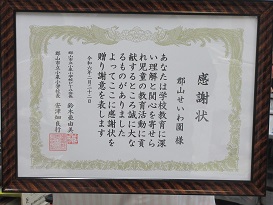 感謝状
郡山せいわ園 様
あなたは学校教育に深
い理解と関心を寄せら
れ児童の教育活動に貢
献するところ誠に大な
るものがありました
よってここに感謝状を
贈り謝意を表します
令和六年二月二十二日
鈴木亜由美
安津畑良行